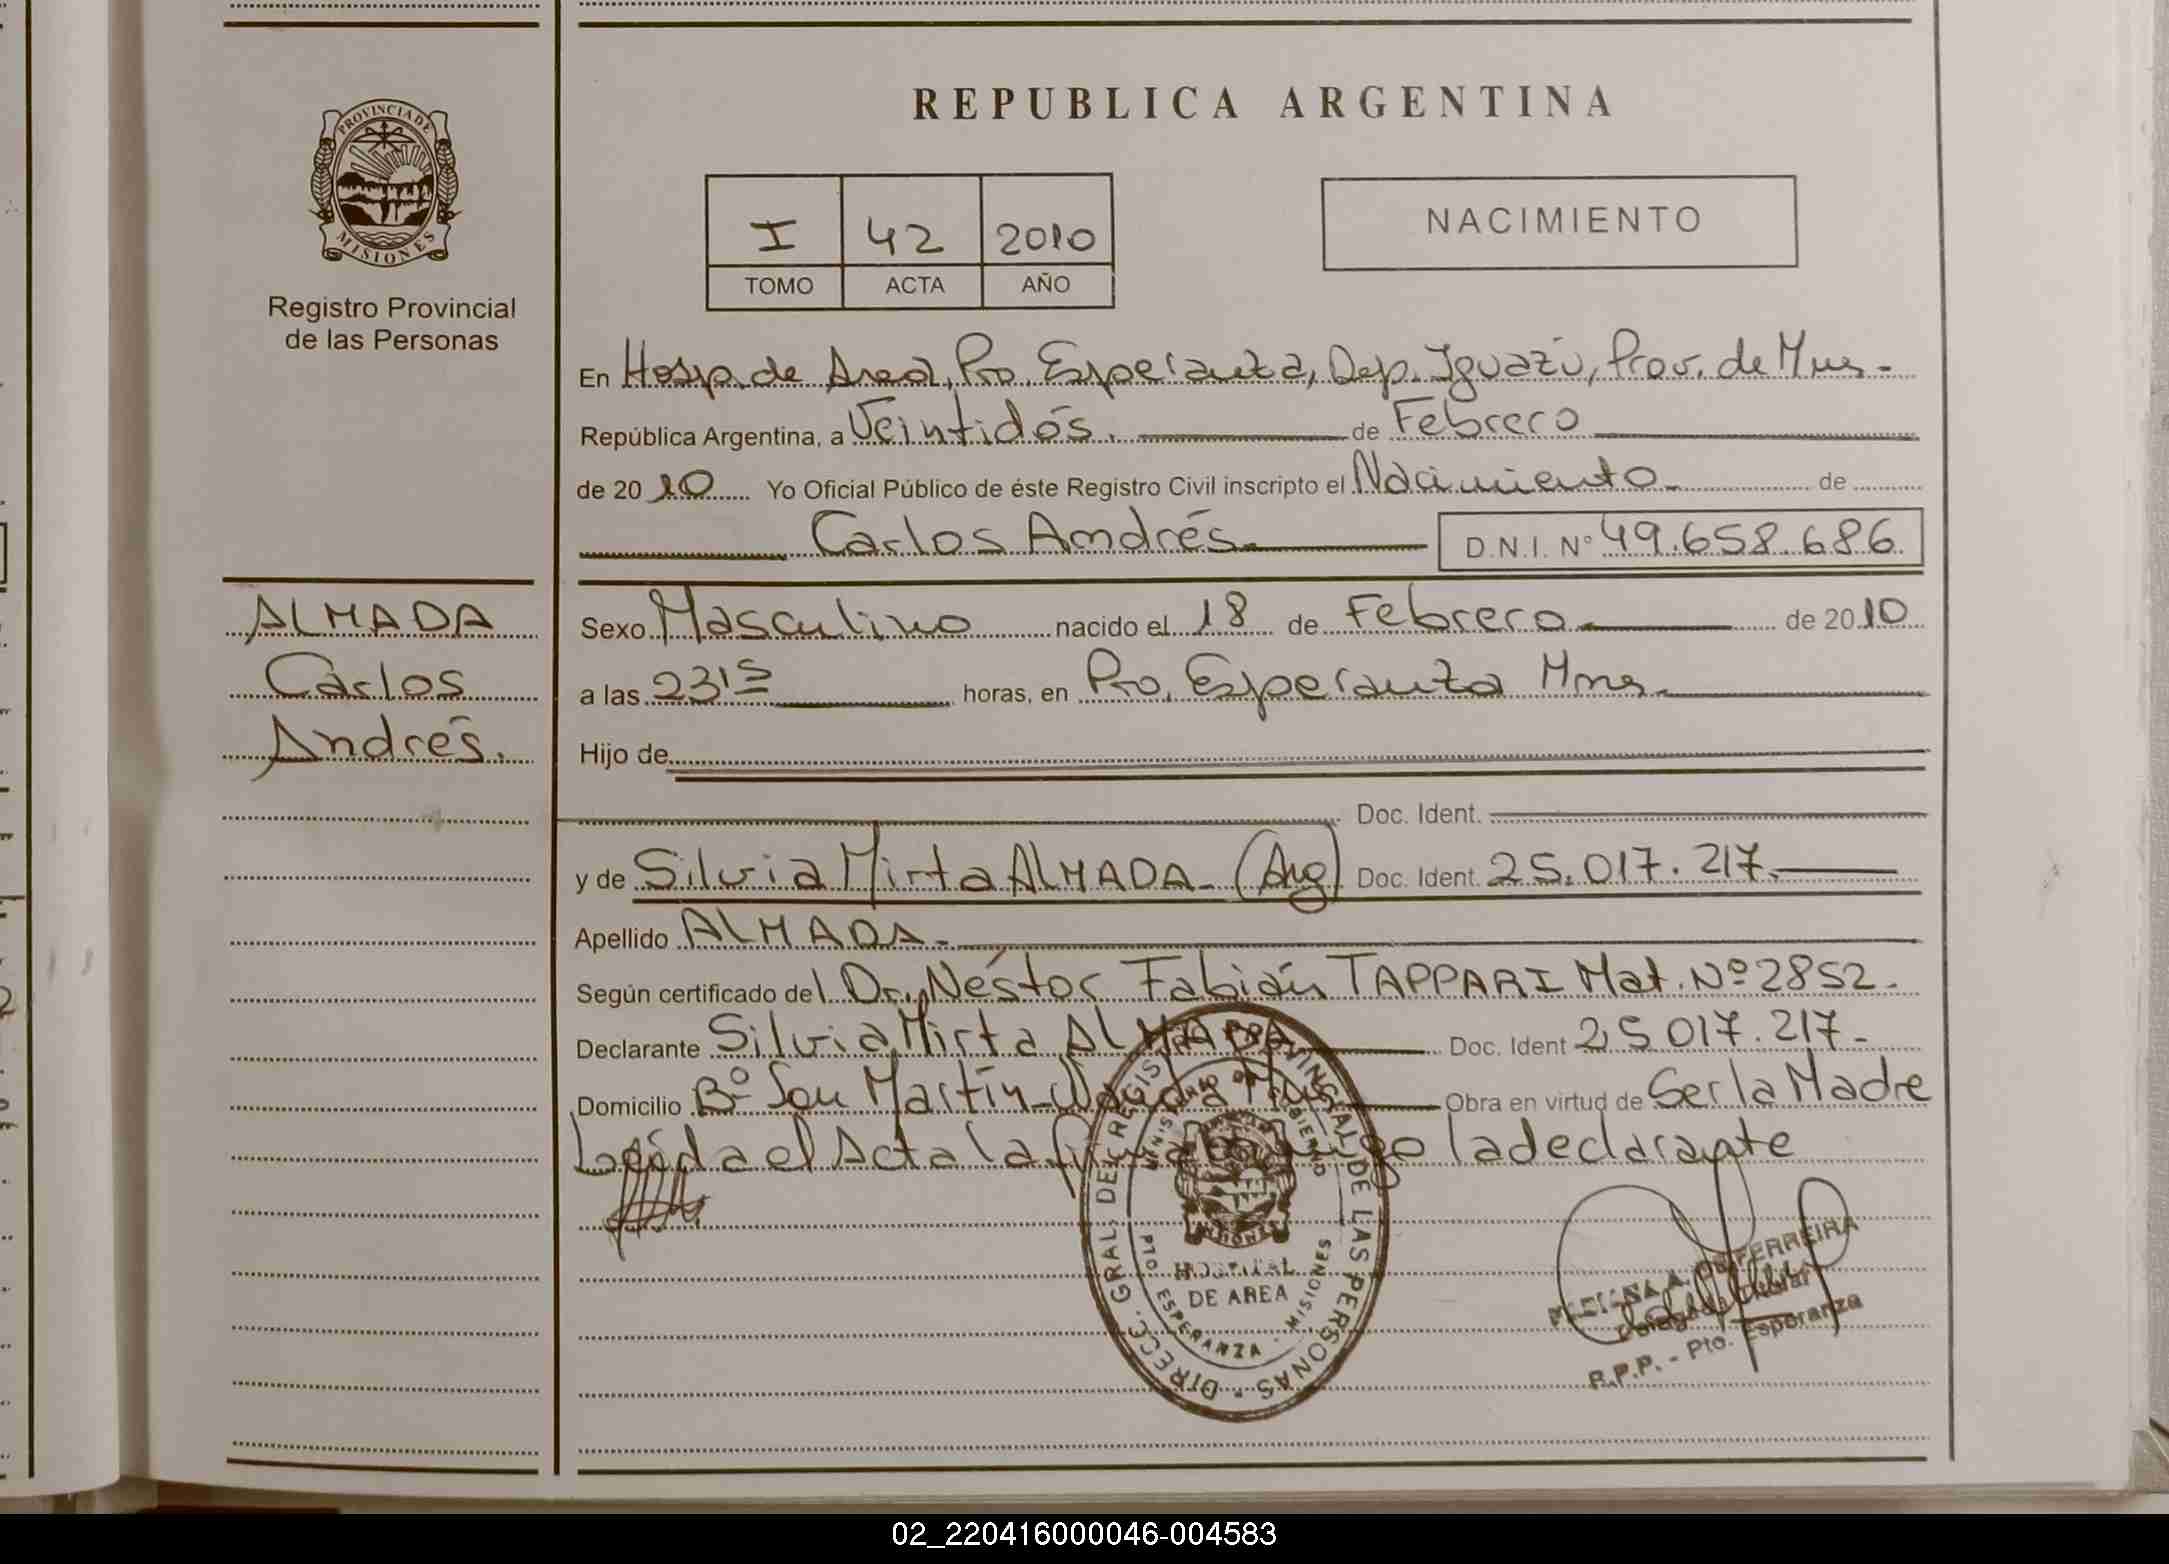 REPUBLICA ARGENTINA
PROVINCIA DE
MISIONES
Registro Provincial
de las Personas
I 42 2010
TOMO ACTA AÑO
NACIMIENTO
En Hosp. de Area, Pto. Esperanza, Dep. Iguazú, Prov. de Mnes.
República Argentina, a Veintidós. de Febrero
de 2010 Yo Oficial Público de éste Registro Civil inscripto el Nacimiento de
Carlos Andrés. D.N.I. Nº 49.658.686.
ALMADA
Carlos
Andrés.
Sexo Masculino nacido el 18 de Febrero de 2010
a las 2315 horas, en Pto. Esperanza Mnes.
Hijo de
Doc. Ident.
y de Silvia Mirta ALMADA - (Arg) Doc. Ident. 25.017.217.
Apellido ALMADA -
Según certificado del Dr. Néstor Fabián TAPPARI Mat. Nº 2852.
Declarante Silvia Mirta ALMADA Doc. Ident 25.017.217-
Domicilio Bº San Martín - Wanda Mnes Obra en virtud de Ser la Madre
Leída el Acta la firma conmigo la declarante
DIRECC. GRAL. DEL REGISTRO PROVINCIAL DE LAS PERSONAS
MINISTERIO DE GOBIERNO
HOSPITAL
DE AREA
PTO ESPERANZA - MISIONES
DE FERREIRA
Delegada Titular
R.P.P. - Pto. Esperanza
02_220416000046-004583